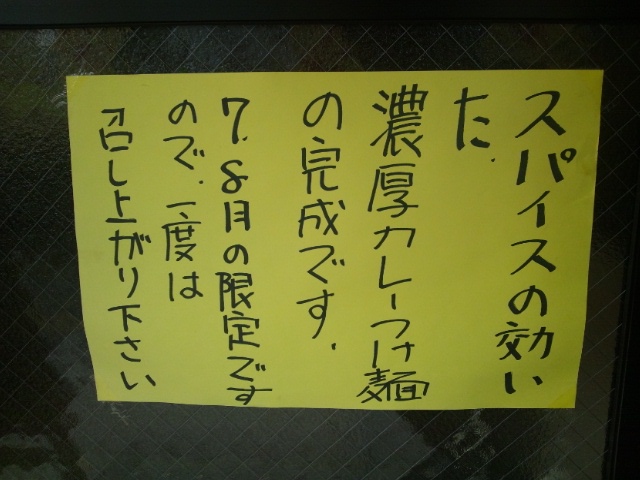 スパイスの効い
た.
濃厚カレーつけ麺
の完成です.
7.8月の限定です
ので.一度は
召し上がり下さい